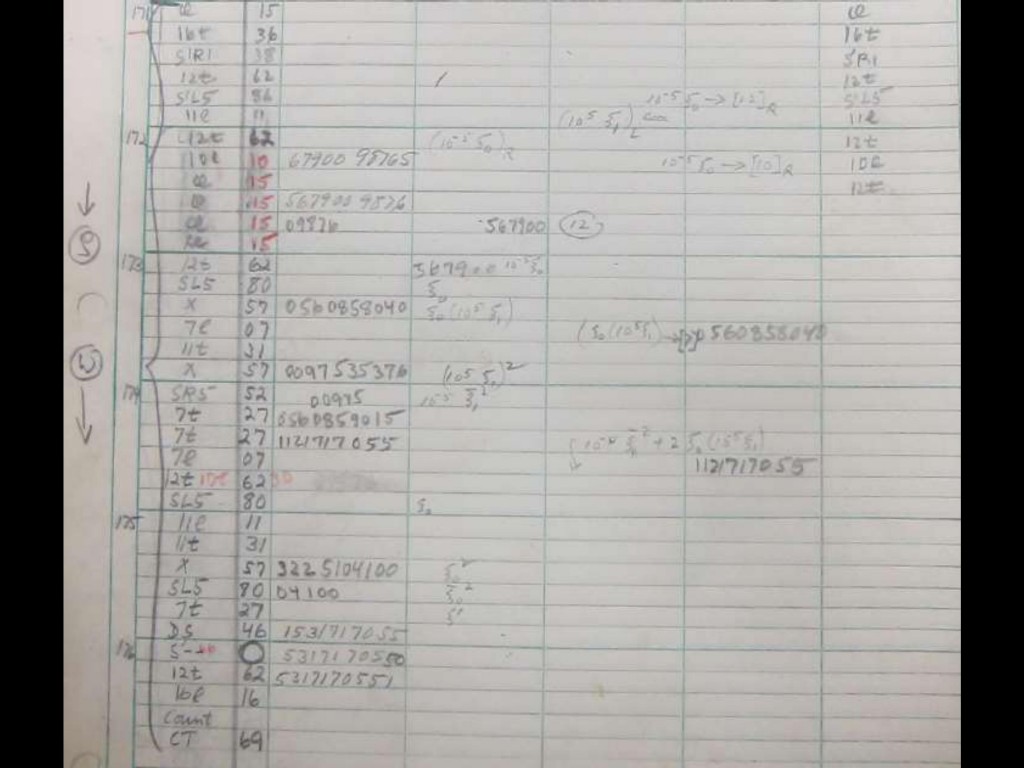 171 e 15 e
16t 36 16t
SR1 38 SR1
12t 62 12t
SL5 86 10⁻⁵ ξ₀ → [12]R SL5
11l 11 (10⁵ ξ₁)L 11l
172 12t 62 (10⁻⁵ ξ₀)R 12t
10l 10 67900 98765 10⁻⁵ ξ₀ → [10]R 10l
e 15 12t
e 15 567900 9876
e 15 09876 567900 (12)
15
173 12t 62 567900 10⁻⁵ξ₀
SL5 80 ξ₀
X 57 0560858040 ξ₀(10⁵ ξ₁)
7l 07 (ξ₀(10⁵ξ₁) → 0560858040
11t 31
X 57 0097535376 (10⁵ ξ₁)²
174 SR5 52 00975 10⁻⁵ ξ₁²
7t 27 0560859015
7t 27 1121717055 + 2 ξ₀(10⁵ξ₁)
7l 07 1121717055
12t 10t 62 30
SL5 80 ξ₀
175 11l 11
11t 31
X 57 3225104100 ξ₀²
SL5 80 04100 ξ₀²
7t 27
DS 46 1531717055
176 5317170550
12t 62 5317170551
16l 16
Count
CT 69